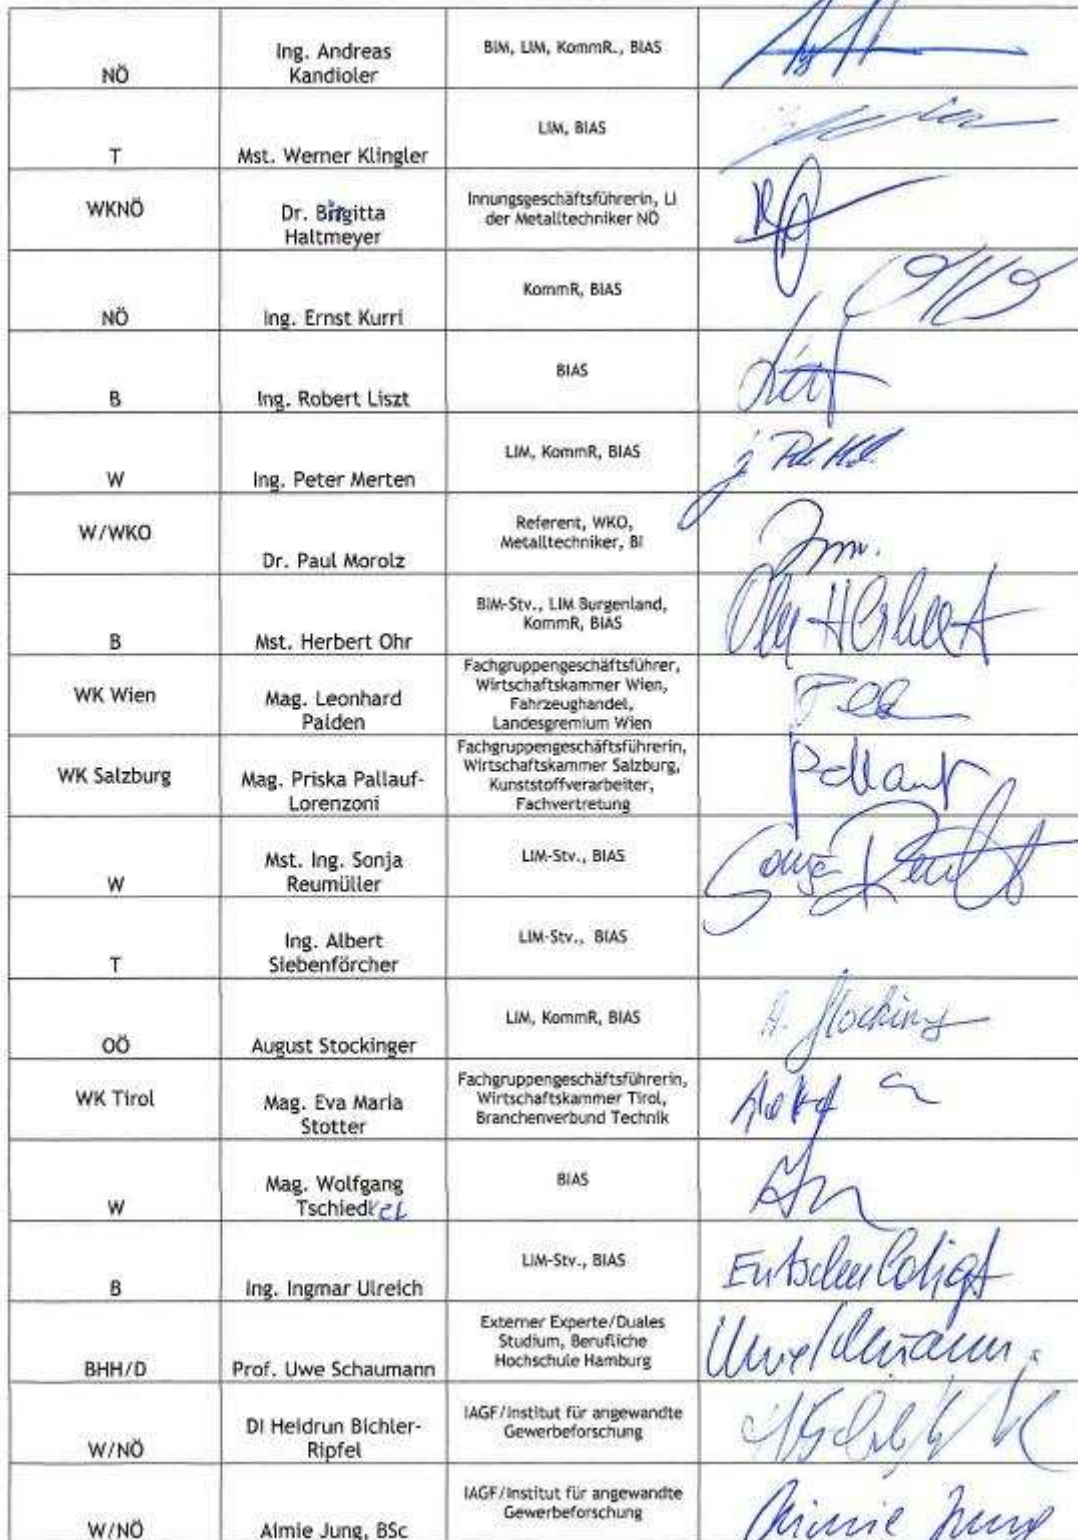 NÖ
Ing. Andreas
Kandioler
BIM, LIM, KommR., BIAS
T
Mst. Werner Klingler
LIM, BIAS
WKNÖ
Dr. Birgitta
Haltmeyer
Innungsgeschäftsführerin, LI
der Metalltechniker NÖ
NÖ
Ing. Ernst Kurri
KommR, BIAS
B
Ing. Robert Liszt
BIAS
W
Ing. Peter Merten
LIM, KommR, BIAS
W/WKO
Dr. Paul Morolz
Referent, WKO,
Metalltechniker, BI
B
Mst. Herbert Ohr
BIM-Stv., LIM Burgenland,
KommR, BIAS
Ohr Herbert
WK Wien
Mag. Leonhard
Palden
Fachgruppengeschäftsführer,
Wirtschaftskammer Wien,
Fahrzeughandel,
Landesgremium Wien
WK Salzburg
Mag. Priska Pallauf-
Lorenzoni
Fachgruppengeschäftsführerin,
Wirtschaftskammer Salzburg,
Kunststoffverarbeiter,
Fachvertretung
Pallauf
W
Mst. Ing. Sonja
Reumüller
LIM-Stv., BIAS
Sonja
T
Ing. Albert
Siebenförcher
LIM-Stv., BIAS
OÖ
August Stockinger
LIM, KommR, BIAS
A. Stocking
WK Tirol
Mag. Eva Maria
Stotter
Fachgruppengeschäftsführerin,
Wirtschaftskammer Tirol,
Branchenverbund Technik
W
Mag. Wolfgang
Tschiedel
BIAS
B
Ing. Ingmar Ulreich
LIM-Stv., BIAS
Entschuldigt
BHH/D
Prof. Uwe Schaumann
Externer Experte/Duales
Studium, Berufliche
Hochschule Hamburg
W/NÖ
DI Heidrun Bichler-
Ripfel
IAGF/Institut für angewandte
Gewerbeforschung
W/NÖ
Aimie Jung, BSc
IAGF/Institut für angewandte
Gewerbeforschung
Aimie Jung